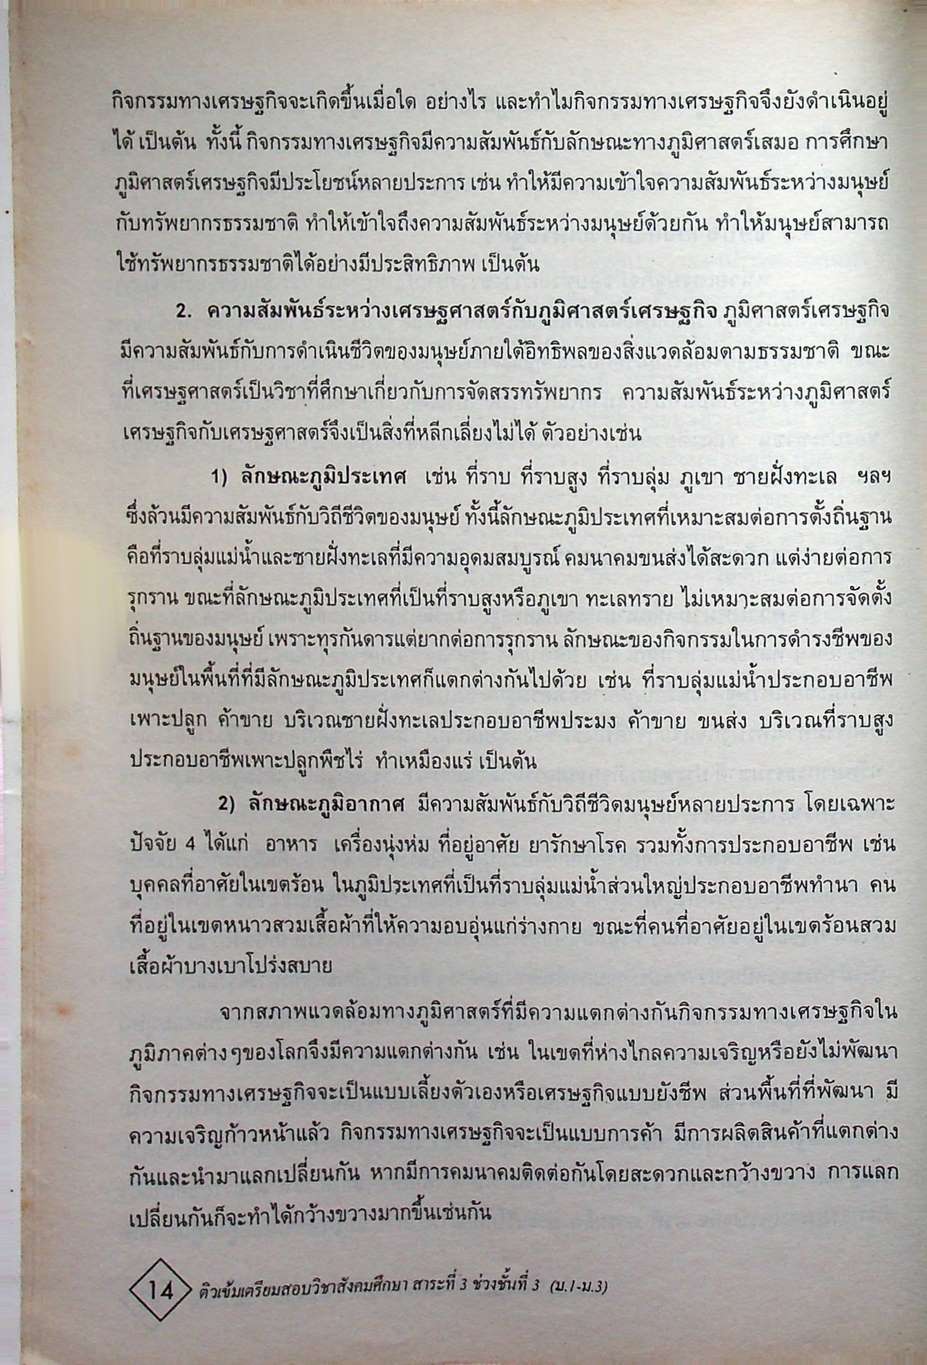 กิจกรรมทางเศรษฐกิจจะเกิดขึ้นเมื่อใด อย่างไร และทำไมกิจกรรมทางเศรษฐกิจจึงยังดำเนินอยู่
ได้ เป็นต้น ทั้งนี้ กิจกรรมทางเศรษฐกิจมีความสัมพันธ์กับลักษณะทางภูมิศาสตร์เสมอ การศึกษา
ภูมิศาสตร์เศรษฐกิจมีประโยชน์หลายประการ เช่น ทำให้มีความเข้าใจความสัมพันธ์ระหว่างมนุษย์
กับทรัพยากรธรรมชาติ ทำให้เข้าใจถึงความสัมพันธ์ระหว่างมนุษย์ด้วยกัน ทำให้มนุษย์สามารถ
ใช้ทรัพยากรธรรมชาติได้อย่างมีประสิทธิภาพ เป็นต้น
2. ความสัมพันธ์ระหว่างเศรษฐศาสตร์กับภูมิศาสตร์เศรษฐกิจ ภูมิศาสตร์เศรษฐกิจ
มีความสัมพันธ์กับการดำเนินชีวิตของมนุษย์ภายใต้อิทธิพลของสิ่งแวดล้อมตามธรรมชาติ ขณะ
ที่เศรษฐศาสตร์เป็นวิชาที่ศึกษาเกี่ยวกับการจัดสรรทรัพยากร ความสัมพันธ์ระหว่างภูมิศาสตร์
เศรษฐกิจกับเศรษฐศาสตร์จึงเป็นสิ่งที่หลีกเลี่ยงไม่ได้ ตัวอย่างเช่น
1) ลักษณะภูมิประเทศ เช่น ที่ราบ ที่ราบสูง ที่ราบลุ่ม ภูเขา ชายฝั่งทะเล ฯลฯ
ซึ่งล้วนมีความสัมพันธ์กับวิถีชีวิตของมนุษย์ ทั้งนี้ลักษณะภูมิประเทศที่เหมาะสมต่อการตั้งถิ่นฐาน
คือที่ราบลุ่มแม่น้ำและชายฝั่งทะเลที่มีความอุดมสมบูรณ์ คมนาคมขนส่งได้สะดวก แต่ง่ายต่อการ
รุกราน ขณะที่ลักษณะภูมิประเทศที่เป็นที่ราบสูงหรือภูเขา ทะเลทราย ไม่เหมาะสมต่อการจัดตั้ง
ถิ่นฐานของมนุษย์ เพราะทุรกันดารแต่ยากต่อการรุกราน ลักษณะของกิจกรรมในการดำรงชีพของ
มนุษย์ในพื้นที่ที่มีลักษณะภูมิประเทศก็แตกต่างกันไปด้วย เช่น ที่ราบลุ่มแม่น้ำประกอบอาชีพ
เพาะปลูก ค้าขาย บริเวณชายฝั่งทะเลประกอบอาชีพประมง ค้าขาย ขนส่ง บริเวณที่ราบสูง
ประกอบอาชีพเพาะปลูกพืชไร่ ทำเหมืองแร่ เป็นต้น
2) ลักษณะภูมิอากาศ มีความสัมพันธ์กับวิถีชีวิตมนุษย์หลายประการ โดยเฉพาะ
ปัจจัย 4 ได้แก่ อาหาร เครื่องนุ่งห่ม ที่อยู่อาศัย ยารักษาโรค รวมทั้งการประกอบอาชีพ เช่น
บุคคลที่อาศัยในเขตร้อน ในภูมิประเทศที่เป็นที่ราบลุ่มแม่น้ำส่วนใหญ่ประกอบอาชีพทำนา คน
ที่อยู่ในเขตหนาวสวมเสื้อผ้าที่ให้ความอบอุ่นแก่ร่างกาย ขณะที่คนที่อาศัยอยู่ในเขตร้อนสวม
เสื้อผ้าบางเบาโปร่งสบาย
จากสภาพแวดล้อมทางภูมิศาสตร์ที่มีความแตกต่างกันกิจกรรมทางเศรษฐกิจใน
ภูมิภาคต่างๆของโลกจึงมีความแตกต่างกัน เช่น ในเขตที่ห่างไกลความเจริญหรือยังไม่พัฒนา
กิจกรรมทางเศรษฐกิจจะเป็นแบบเลี้ยงตัวเองหรือเศรษฐกิจแบบยังชีพ ส่วนพื้นที่ที่พัฒนา มี
ความเจริญก้าวหน้าแล้ว กิจกรรมทางเศรษฐกิจจะเป็นแบบการค้า มีการผลิตสินค้าที่แตกต่าง
กันและนำมาแลกเปลี่ยนกัน หากมีการคมนาคมติดต่อกันโดยสะดวกและกว้างขวาง การแลก
เปลี่ยนกันก็จะทำได้กว้างขวางมากขึ้นเช่นกัน
14 ติวเข้มเตรียมสอบวิชาสังคมศึกษา สาระที่ 3 ช่วงชั้นที่ 3 (ม.1-ม.3)